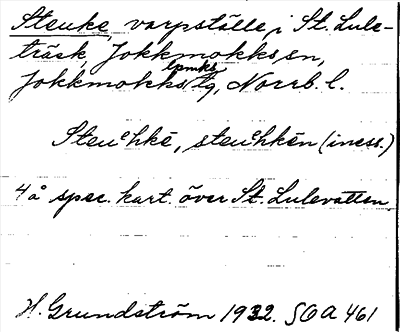 Steuke, varpställe i St. Lule-
träsk, Jokkmokks sn,
Jokkmokks lpmks tg, Norrb. l.
Steuᵉhkē, steuᵉhkēn (iness.)
4 å spec. kart. över St. Lulevatten
H. Grundström 1932. SOA 461